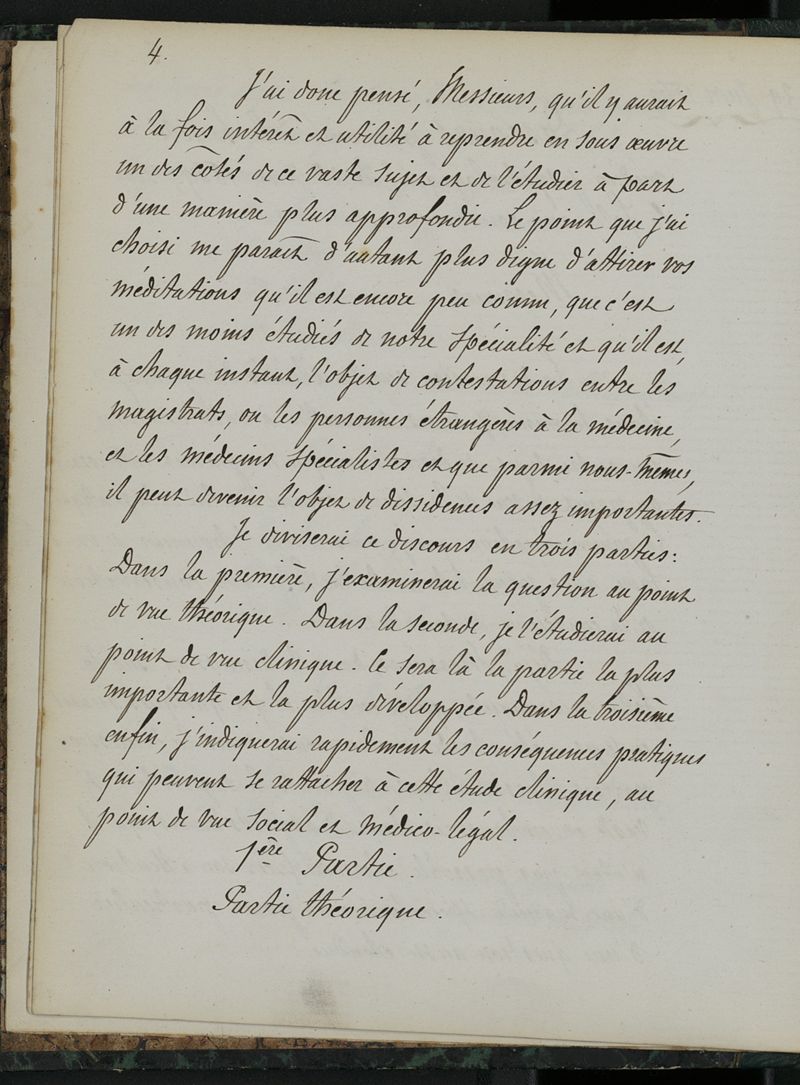 4.
J'ai donc pensé, Messieurs, qu'il y aurait
à la fois intérêt et utilité à reprendre en sous œuvre
un des côtés de ce vaste sujet et de l'étudier à part
d'une manière plus approfondie. Le point que j'ai
choisi me paraît d'autant plus digne d'attirer vos
méditations qu'il est encore peu connu, que c'est
un des moins étudiés de notre spécialité et qu'il est,
à chaque instant, l'objet de contestations entre les
magistrats, ou les personnes étrangères à la médecine,
et les médecins spécialistes et que parmi nous-mêmes,
il peut devenir l'objet de dissidences assez importantes.
Je diviserai ce discours en trois parties:
Dans la première, j'examinerai la question au point
de vue théorique. Dans la seconde, je l'étudierai au
point de vue clinique. Ce sera là la partie la plus
importante et la plus développée. Dans la troisième
enfin, j'indiquerai rapidement les conséquences pratiques
qui peuvent se rattacher à cette étude clinique, au
point de vue social et médico-légal.
1ère Partie.
Partie théorique.